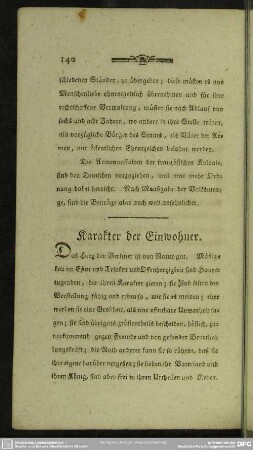 140
schiedenen Ständen, zu übergeben; diese müsten es aus
Menschenliebe ohnentgeldlich übernehmen und für ihre
rechtschafne Verwaltung, müsten sie nach Ablauf von
sechs und acht Jahren, wo andere in ihre Stelle träten,
als vorzügliche Bürger des Staats, als Väter der Ar-
men, mit öffentlichen Ehrenzeichen belohnt werden.
Die Armenanstalten der französischen Kolonie,
sind den Deutschen vorzuziehen, weil mehr Ord-
nung dabei herrscht. Nach Maasgabe der Volksmen-
ge, sind die Beiträge aber auch weit ansehnlicher.
Karakter der Einwohner.
Das Herz der Berliner ist von Natur gut. Mäßig-
keit im Essen und Trinken und Offenherzigkeit sind Haupt-
tugenden, die ihren Karakter zieren; sie sind selten der
Verstellung fähig und reden so, wie sie es meinen; eher
werden sie eine Grobheit, als eine offenbare Unwarheit sa-
gen; sie sind übrigens größtentheils bescheiden, höflich, zu-
vorkommend gegen Fremde und von gesunder Beurthei-
lungskraft; die Noth anderer kann sie so rühren, daß sie
ihre eigene darüber vergessen; sie lieben ihr Vaterland und
ihren König, sind aber frei in ihren Urtheilen und Reden.